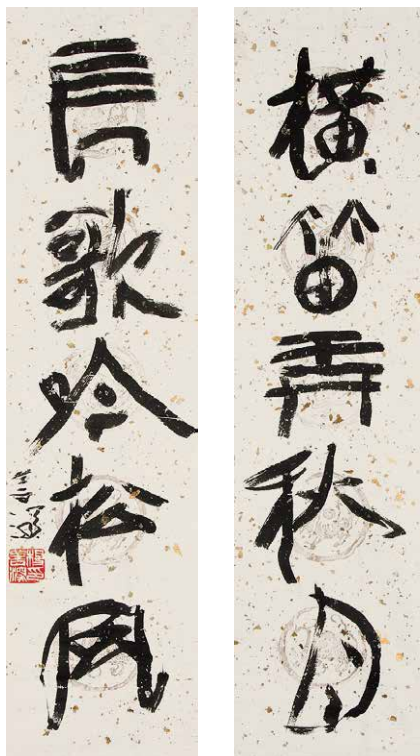 橫笛弄秋月
長歌吟松風